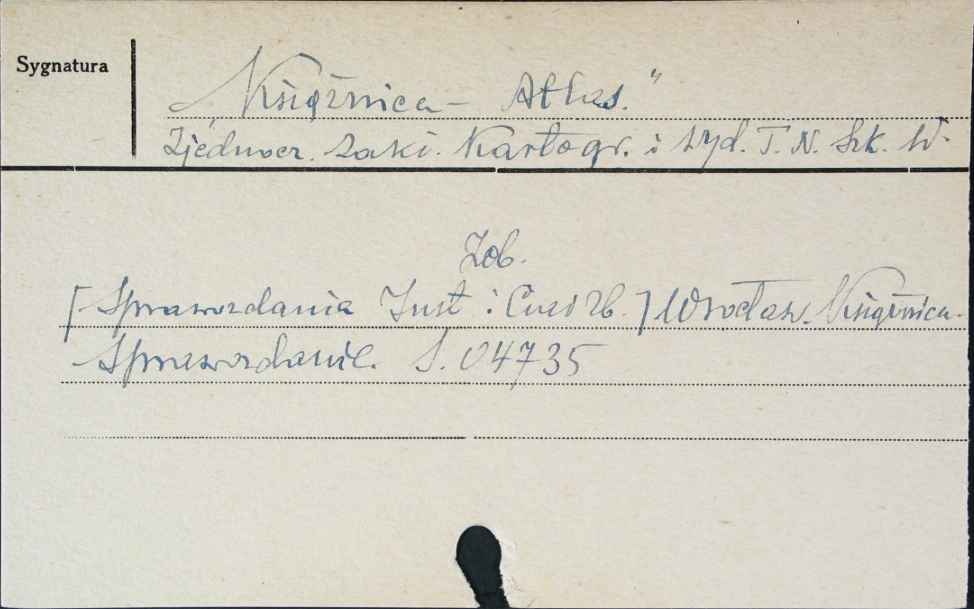 Sygnatura
„Książnica - Atlas.”
Zjednocz. Zakł. Kartogr. i Wyd. T. N. Szk. W.
Zob.
[Sprawozdania Inst i ] Wrocław. Książnica.
Sprawozdanie. S. 04735